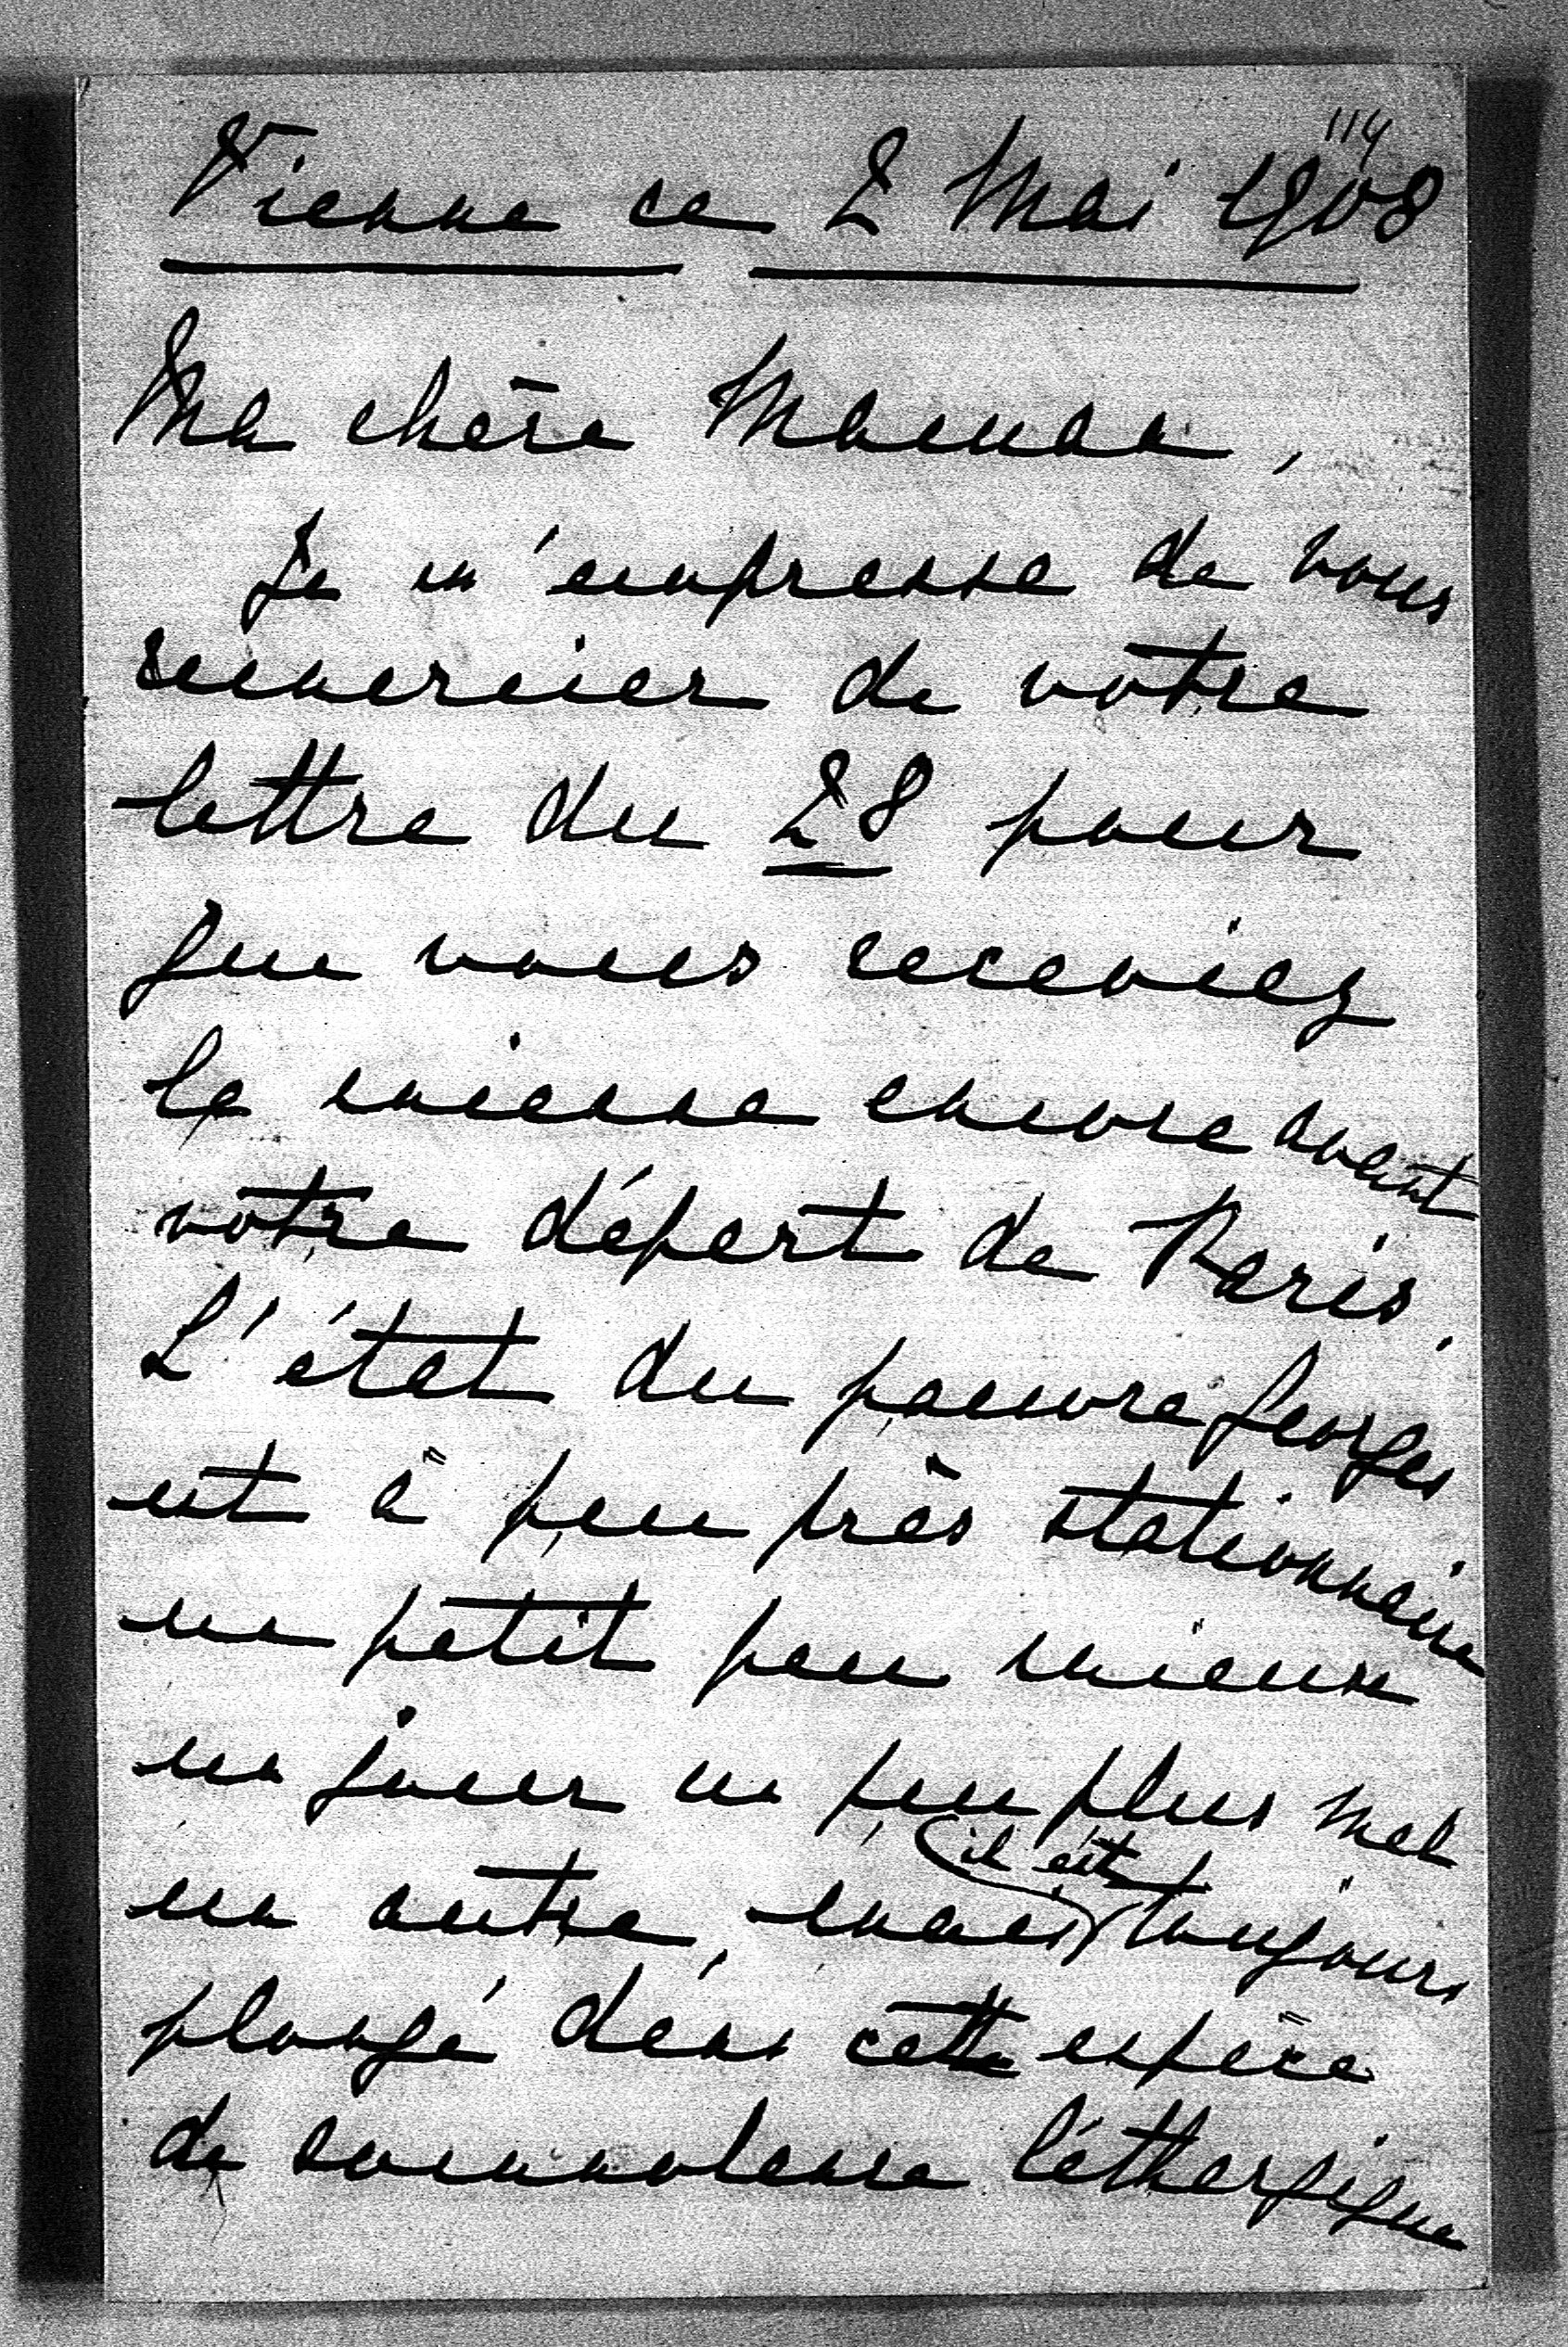 114
Vienne ce 2 Mai 1908
Ma chère Maman,
Je m'empresse de vous
remercier de votre
lettre du 28 pour
que vous receviez
la mienne encore avant
votre départ de Paris.
L'état du pauvre Georges
est à peu près stationnaire
un petit peu mieux
un jour un peu plus mal
un autre, mais (il est) toujours
plongé dans cette espèce
de somnolence léthargique